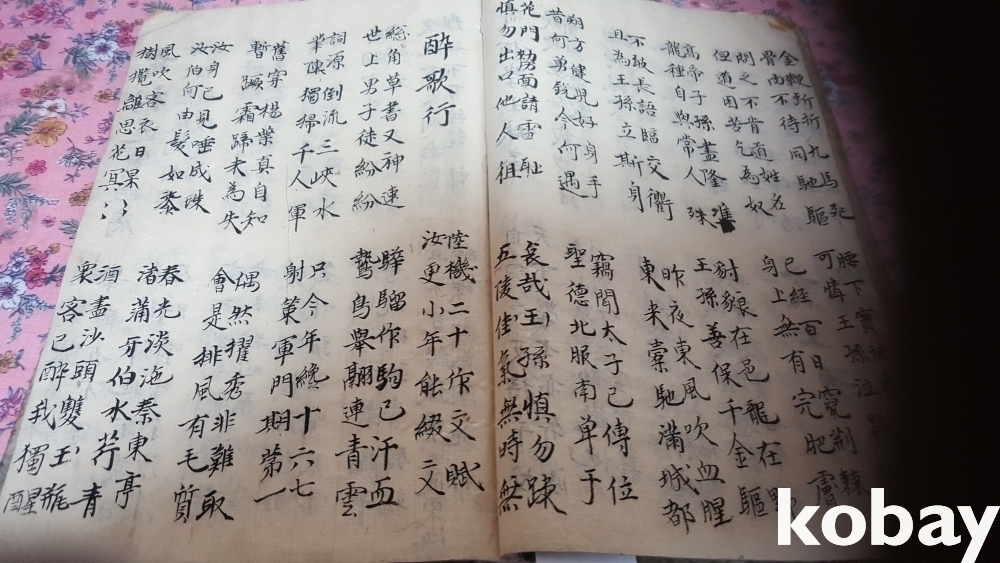 金鞭斷折九馬死
骨肉不待同馳驅
腰下寶
可憐王孫泣
問之不肯道姓名
但道困苦乞為奴
已經百日竄荊棘
身上無有完肥膚
高帝子孫盡隆準
龍種自與常人殊
豺狼在邑龍在野
王孫善保千金驅
不敢長語臨交衢
且為王孫立斯身
昨夜東風吹血腥
東來橐馳滿城都
朔方健兒好身手
昔何勇銳今何遇
竊聞太子已傳位
聖德北服南單于
花門剺面請雪恥
慎勿出口他人徂
哀哉王孫慎勿疎
五陵佳氣無時無
醉歌行
陸機二十作文賦
汝更小年能綴文
總角草書又神速
世上男子徒紛紛
驊騮作駒已汗血
鷙鳥舉翮連青雲
詞源倒流三峽水
筆陣獨掃千人軍
只今年纔十六七
射策軍門期第一
舊穿楊葉真自知
暫蹶霜蹄未為失
偶然擢秀非難取
會是排風有毛質
汝身已見唾成珠
汝伯何由髮如漆
春光淡沲秦東亭
渚蒲牙伯水荇青
風吹客衣日杲〻
樹攪離思花冥〻
酒盡沙頭雙玉瓶
衆客已醉我獨醒
kobay